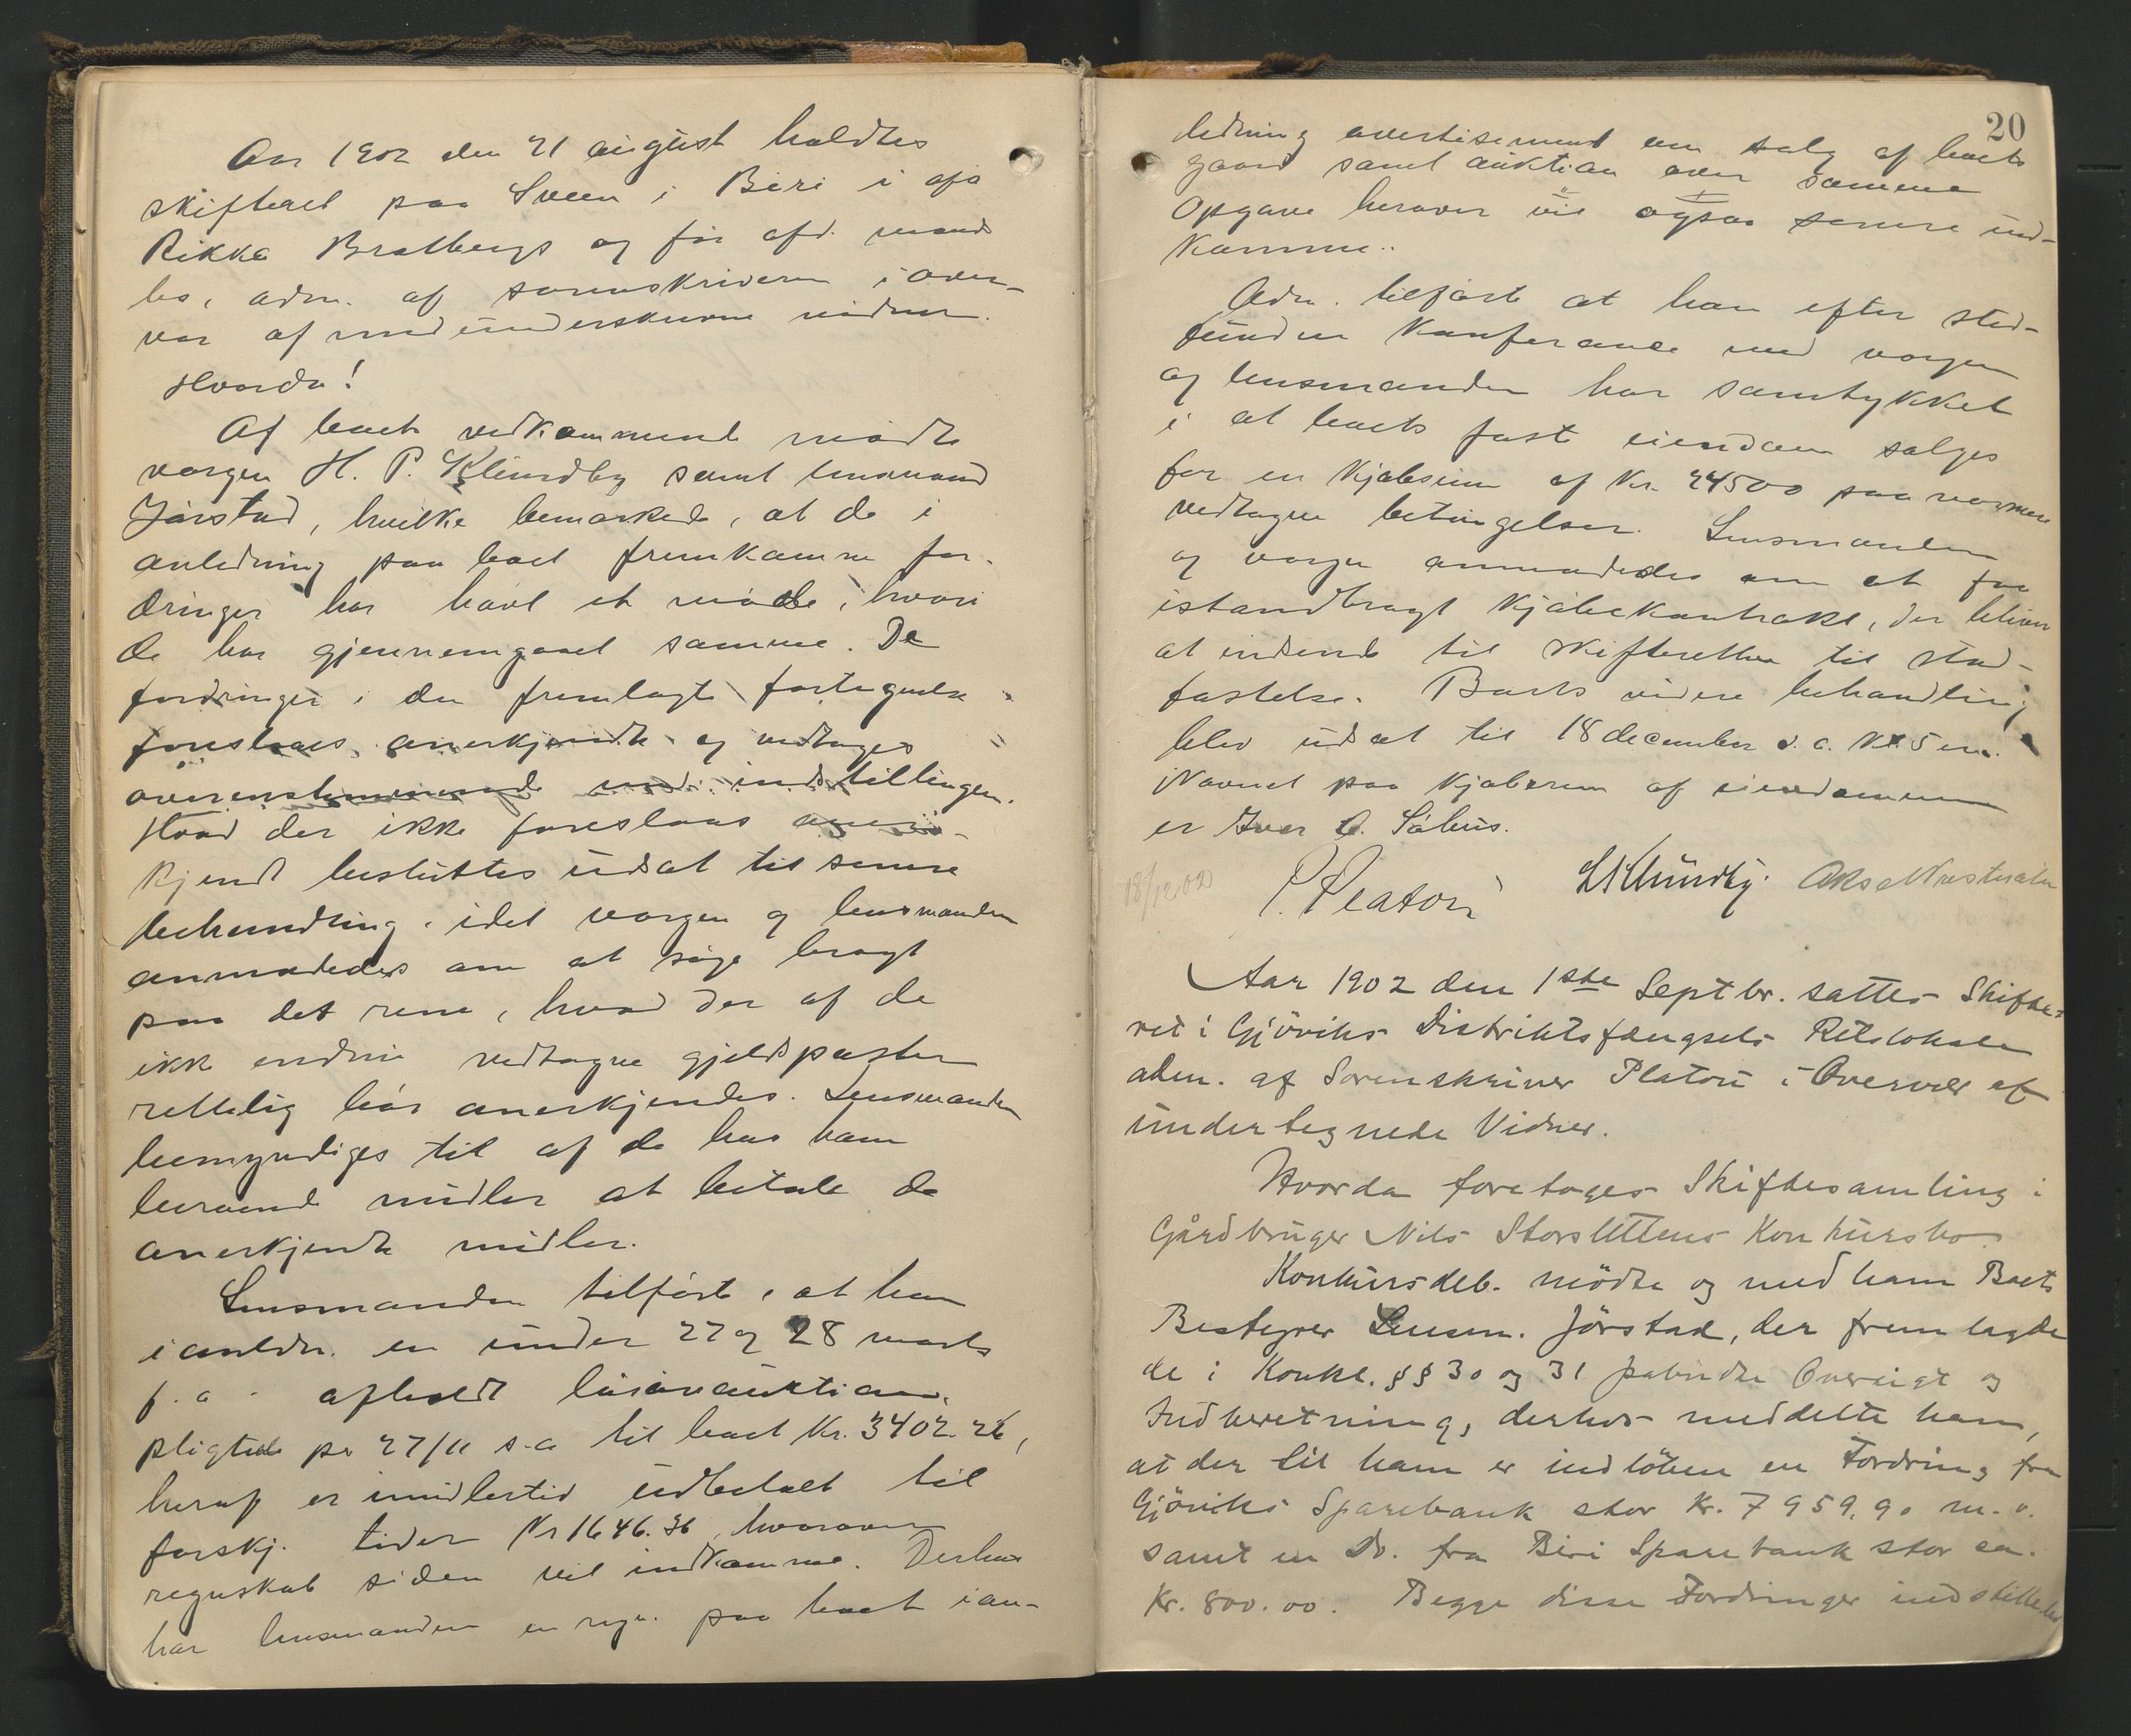 Aar 1902 den 21 august holdtes
skifteret paa Sveen i Biri i afd
Rikka Bratbergs og før afd. mands
bo, adm. af sorenskriveren i over-
vær af medunderskrevne vidner.
Hvorda!
Af boet vedkommende mødte
vergen H. P. Klundby samt lensmand
Jørstad, hvilke bemærkede, at de i
anledning paa boet fremkomne for-
dringer har havt et møde, hvori
de har gjennemgaaet samme. De
fordringer i den fremlagte fortegnelse
foreslaaes anerkjendt og vedtages
overensstemmende med indstillingen.
Hvad der ikke foreslaaes aner-
kjendt besluttes udsat til senere
behandling, idet vergen og lensmanden
anmodedes om at søge bragt
paa det rene, hvad der af de
ikke endnu vedtagne gjeldsposter
rettelig bør anerkjendes. Lensmanden
bemyndiges til af de hos ham
beroende midler at betale de
anerkjendte midler.
Lensmanden tilførte, at han
i anledn. en under 27 og 28 marts
f. a. afholdt løsøreauktion,
pligtede pr 27/11 s.a til boet Kr. 3402.26,
heraf er imidlertid udbetalt til
forskj. tider Kr 1646.36, hvorover
regnskab siden vil indkomme. Derhos
har lensmanden en regn. paa boet i an-
20
ledning avertisement om salg af boets
gaard samt auktion over samme
Opgave herover vil ogsaa senere ind-
komme..
Adm. tilførte at han efter sted-
funden konferance med vergen
og lensmanden har samtykket
i at boets fast eiendom sælges
for en kjøbesum af Kr. 24500 paa nærmere
vedtagne betingelser. Lensmanden
og vergen anmodedes om at faa
istandbragt kjøbekontrakt, der bliver
at indsende til skifteretten til stad-
fæstelse. Boets videre behandling
blev udsat til 18 december d. a. Kl. 5 em.
Navnet paa kjøberen af eiendommen
er Iver O. Sæhus.
18/12 02
P. Platou
H Klundby. Aksel
Aar 1902 den 1ste Septbr. sattes Skifte-
ret i Gjöviks Distriktsfængsels Retslokale
adm. af Sorenskriver Platou i Overvær af
undertegnede Vidner.
Hvorda foretoges Skiftesamling i
Gårdbruger Nils Storslettens Konkursbo.
Konkursdeb. mödte og med ham Boets
Bestyrer Lensm. Jörstad, der fremlagde
de i Konkl. §§ 30 og 31 påbudte Oversigt og
Indberetning, derhos meddelte han,
at der til ham er indlöben en Fordring fra
Gjöviks Sparebank stor Kr. 7959,90 m. v.
samt en Do. fra Biri Sparebank stor ca.
Kr. 800.00. Begge disse Fordringer indstilledes